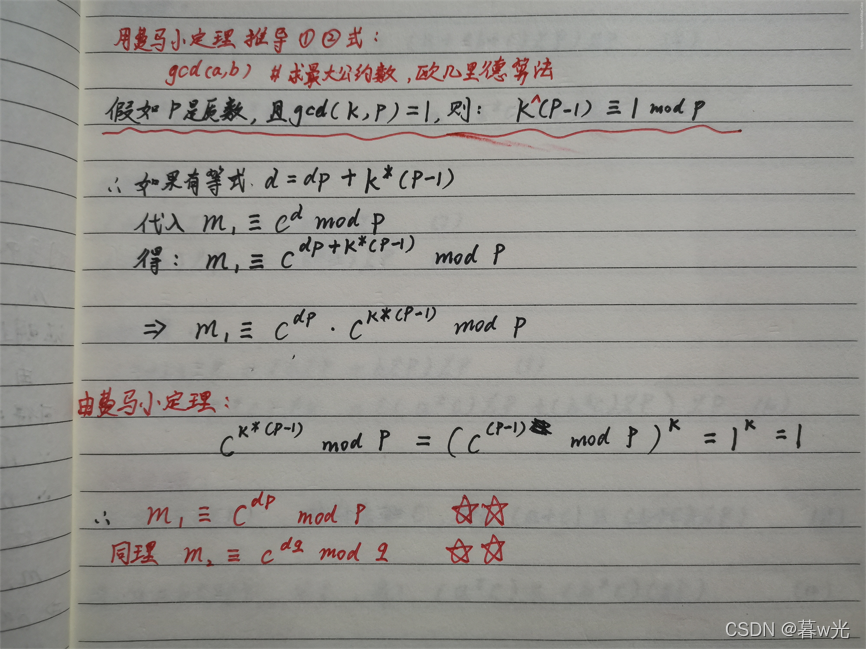 用费马小定理 推导 ① ② 式:
gcd(a,b) # 求最大公约数, 欧几里德算法
假如 P是质数, 且gcd(k,p)=1, 则: K^(P-1) ≡ 1 mod P
∴ 如果有等式. d = dp + k*(P-1)
代入 m₁ ≡ C^d mod P
得: m₁ ≡ C^(dp+k*(P-1)) mod P
=> m₁ ≡ C^dp · C^(k*(P-1)) mod P
由费马小定理:
C^(k*(P-1)) mod P = (C^(P-1) mod P)^k = 1^k = 1
∴ m₁ ≡ C^dp mod P ☆☆
同理 m₂ ≡ C^dq mod q ☆☆
CSDN @暮w光